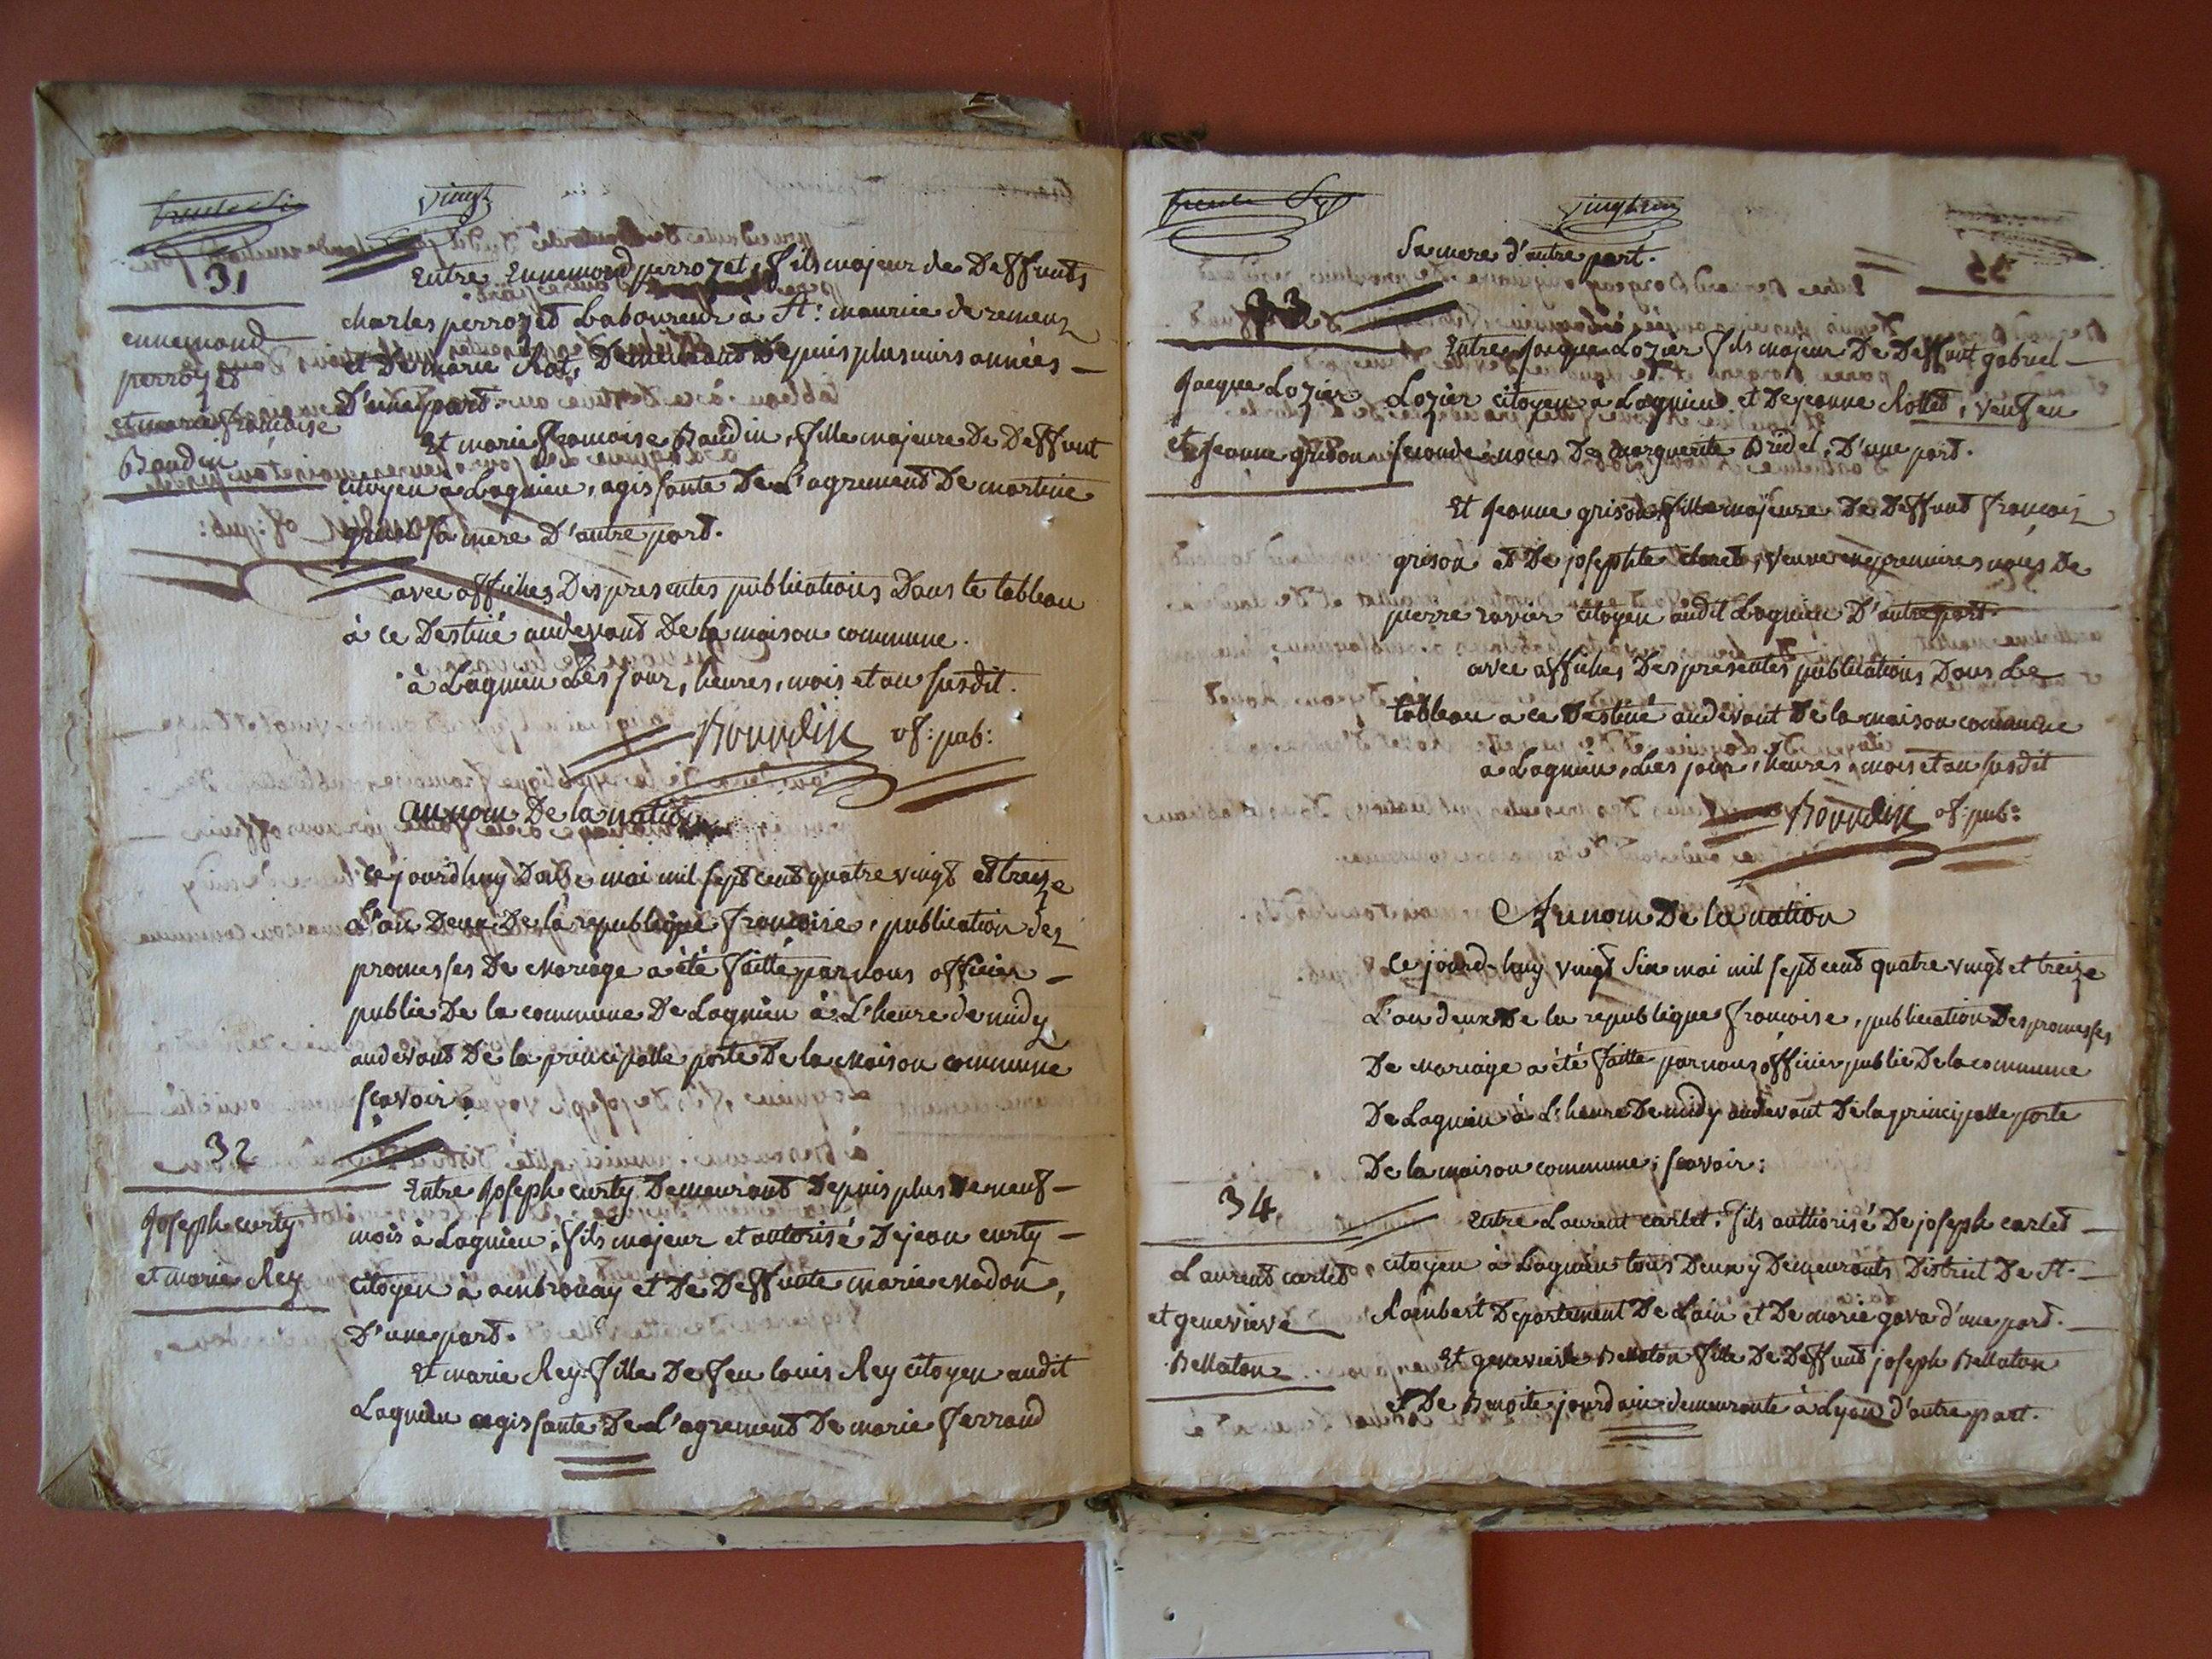 vingt
31
Entre Ennemond perrozet, fils majeur de Deffunts
charles perrozet Laboureur à St: maurice de remens
et De marie Rat, Demeurant Depuis plusieurs années
D'une part.
ennemond
perrozet
et marie françoise
Baudin
Et marie françoise Baudin, fille majeure De Deffunt
citoyen a Lagnieu, agissante De L'agrement De martine
sa mere D'autre part.
avec affiches Des presentes publications Dans le tableau
à ce Destiné audevant De la maison commune.
à Lagnieu Les jour, heures, mois et an susdit.
Bourdin of: pub:
au nom De la nation
ce jourdhuy Douze mai mil sept cent quatre vingt et treize
L'an Deux De la republique françoise, publication des
promesses De mariage a été faitte par nous officier
public De la commune De Lagnieu à L'heure de midy
audevant De la principalle porte De la maison commune
scavoir
32
Entre Joseph curty Demeurant Depuis plus De neuf
mois à Lagnieu, fils majeur et autorisé De jean curty
citoyen à ambronay et De Deffunte marie madon,
D'une part.
Joseph curty
et marie Rey
Et marie Rey fille De feu louis Rey citoyen audit
Lagnieu agissante De L'agrement De marie ferrand
trente sept
vingt un
Sa mere d'autre part.
33
Entre Jacque Lozier fils majeur De Deffunt gabriel
Lozier citoyen a Lagnieu et De jeanne Rollet, veuf en
seconde nôces De marguerite Bridel, D'une part.
Jacque Lozier
et Jeanne grison
Et Jeanne grison fille majeure De Deffunt françois
grison et De josephte claret, veuve en premieres nôces De
pierre ravier citoyen audit Lagnieu D'autre part.
avec affiches Des presentes publications Dans Le
tableau a ce Destiné audevant De la maison commune
a Lagnieu, Les jour, heures, mois et an susdit
Bourdin of: pub:
Au nom De la nation
Ce jourd-huy vingt Six mai mil sept cent quatre vingt et treize
L'an deux De la republique françoise, publication Des promesses
De mariage a été faitte par nous officier public De la commune
De Lagnieu à L'heure De midy audevant De la principalle porte
De la maison commune; scavoir:
34
Entre Laurent carlet, fils authorisé De joseph carlet
citoyen à Lagnieu tous Deux y Demeurants District De St.
Rambert Departement De Lain et De marie gava d'une part.
Laurent carlet
et genevieve
Bellaton
Et genevieve Bellaton fille De Deffunt joseph Bellaton
et De Benoite jourdain demeurante à Lyon d'autre part.